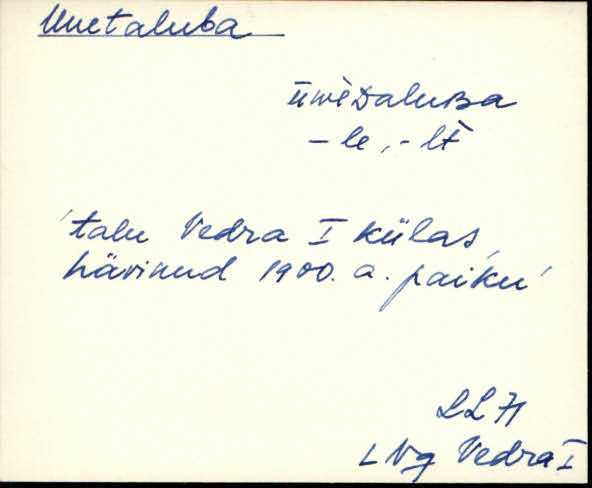 Uuetaluba
üwèDaluBa
- le, - lt
'talu Vedra I külas,
hävinud 1900. a. paiku'
LL 71
LNg Vedra I